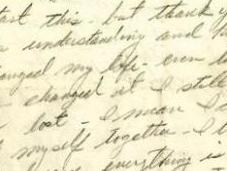 last this - but thank y
understanding and
changed my life - even t
changed it I still
lost - I mean I
myself together - I t
everything is